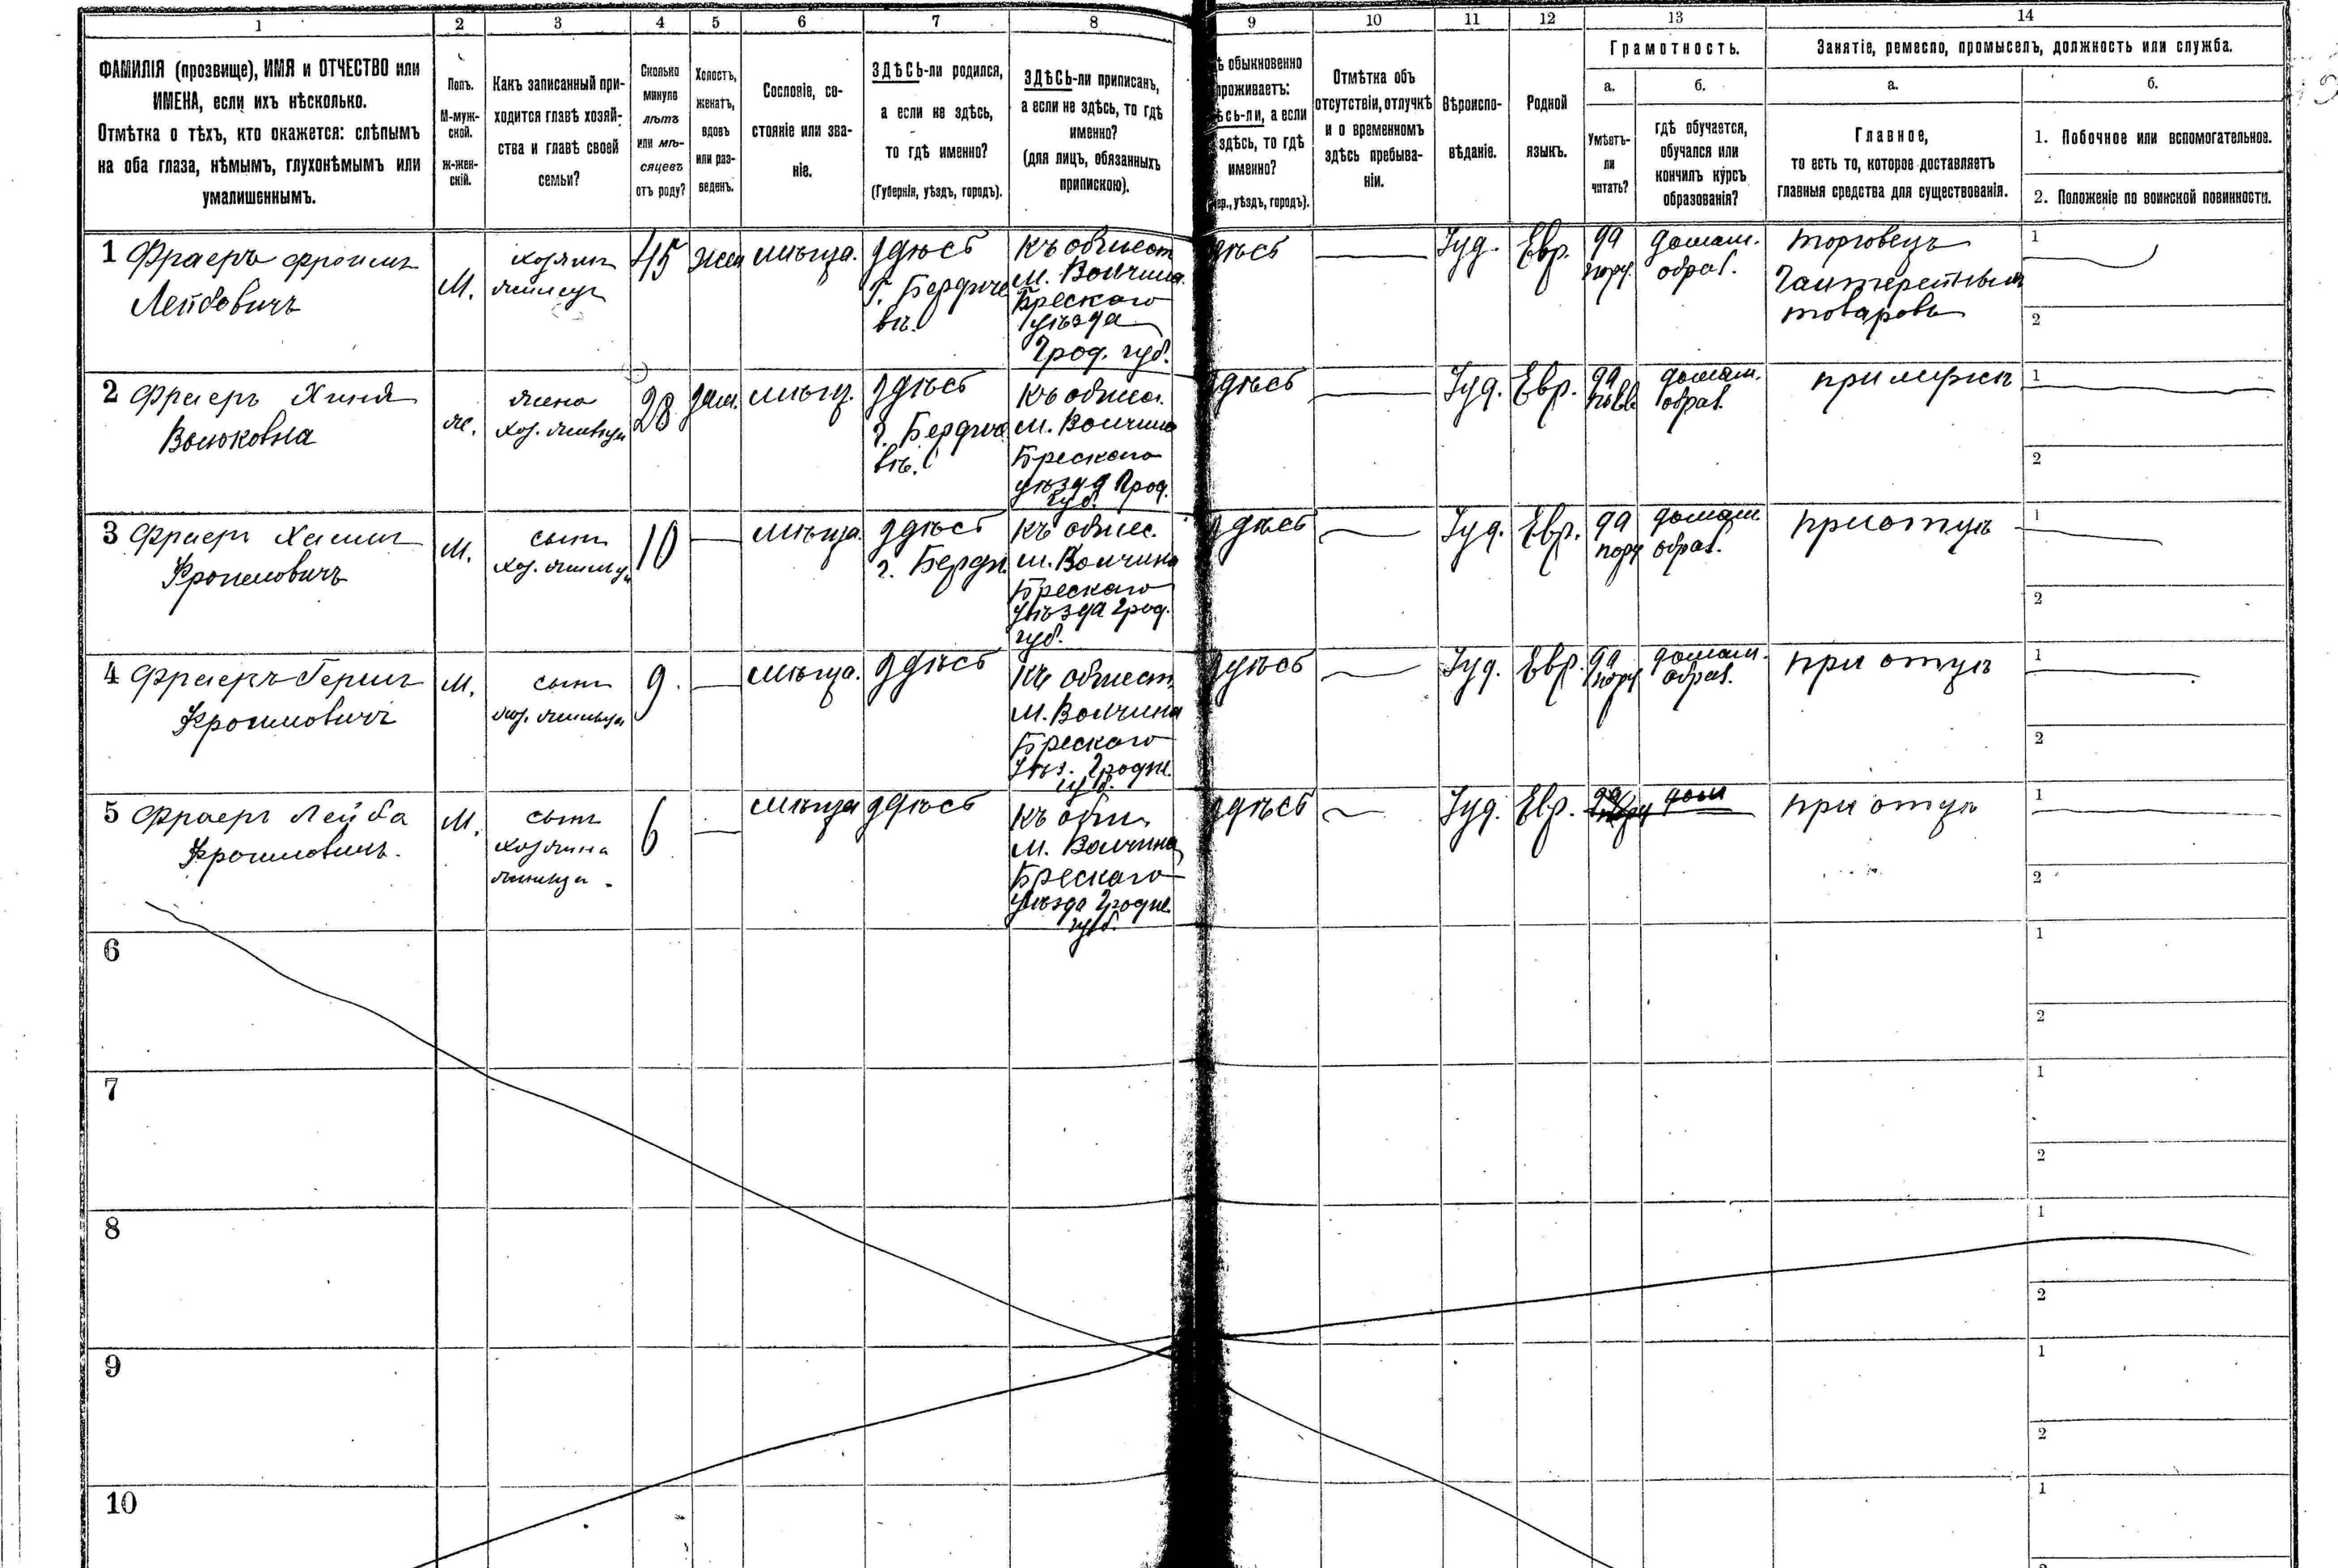 1 2 3 4 5 6 7 8 9 10 11 12 13 14
ФАМИЛІЯ (прозвище), ИМЯ и ОТЧЕСТВО или
ИМЕНА, если ихъ нѣсколько.
Отмѣтка о тѣхъ, кто окажется: слѣпымъ
на оба глаза, нѣмымъ, глухонѣмымъ или
умалишеннымъ.
Полъ.
М-муж-
ской.
ж-жен-
скій.
Какъ записанный при-
ходится главѣ хозяй-
ства и главѣ своей
семьи?
Сколько
минуло
лѣтъ
или мѣ-
сяцевъ
отъ роду?
Холостъ,
женатъ,
вдовъ
или раз-
веденъ.
Сословіе, со-
стояніе или зва-
ніе.
ЗДѢСЬ-ли родился,
а если не здѣсь,
то гдѣ именно?
(Губернія, уѣздъ, городъ).
ЗДѢСЬ-ли приписанъ,
а если не здѣсь, то гдѣ
именно?
(для лицъ, обязанныхъ
припискою).
ѣ обыкновенно
проживаетъ:
ѣсь-ли, а если
здѣсь, то гдѣ
именно?
ер., уѣздъ, городъ).
Отмѣтка объ
отсутствіи, отлучкѣ
и о временномъ
здѣсь пребыва-
ніи.
Вѣроиспо-
вѣданіе.
Родной
языкъ.
Грамотность.
а.
Умѣетъ-
ли
читать?
б.
гдѣ обучается,
обучался или
кончилъ курсъ
образованія?
Занятіе, ремесло, промыселъ, должность или служба.
а.
Главное,
то есть то, которое доставляетъ
главныя средства для существованія.
б.
1. Побочное или вспомогательное.
2. Положеніе по воинской повинности.
1 Фраеръ Фроимъ
Лейбовичъ
М.
хозяинъ
45
жен
мѣща.
здѣсь
г. Бердиче
въ.
Къ общест
м. Волчина
Брескаго
уѣзда
Грод. губ.
здѣсь
Іуд.
Евр.
да
домаш.
образ.
торговецъ
Галантерейныхъ
товаровъ
1
2
2 Фраеръ Хиня
Волковна
ж.
жена
28
зам.
мѣщ.
здѣсь
г. Бердиче
въ.
Къ общес.
м. Волчина
Брескаго
уѣзда Грод.
губ.
здѣсь
Іуд.
Евр.
да
домаш.
образ.
при мужѣ
1
2
3 Фраеръ Хаимъ
Фроимовичъ
М.
сынъ
10
мѣща.
здѣсь
г. Берди.
Къ общес.
м. Волчина
Брескаго
уѣзда Грод.
губ.
здѣсь
Іуд.
Евр.
да
домаш
образ.
при отцѣ
1
2
4 Фраеръ Гершъ
Фроимовичъ
М.
сынъ
9.
мѣща.
здѣсь
Къ общест
м. Волчина
Брескаго
Уѣз. Гродн.
губ.
здѣсь
Іуд.
Евр.
да
домаш.
образ.
при отцѣ
1
2
5 Фраеръ Лейба
Фроимовичъ.
М.
сынъ
хозяина
6
мѣща
здѣсь
Къ общ.
м. Волчина
Брескаго
Уѣзда Гродн.
губ.
здѣсь
Іуд.
Евр.
да
дом
при отцѣ
1
2
6
1
2
7
1
2
8
1
2
9
1
2
10
1